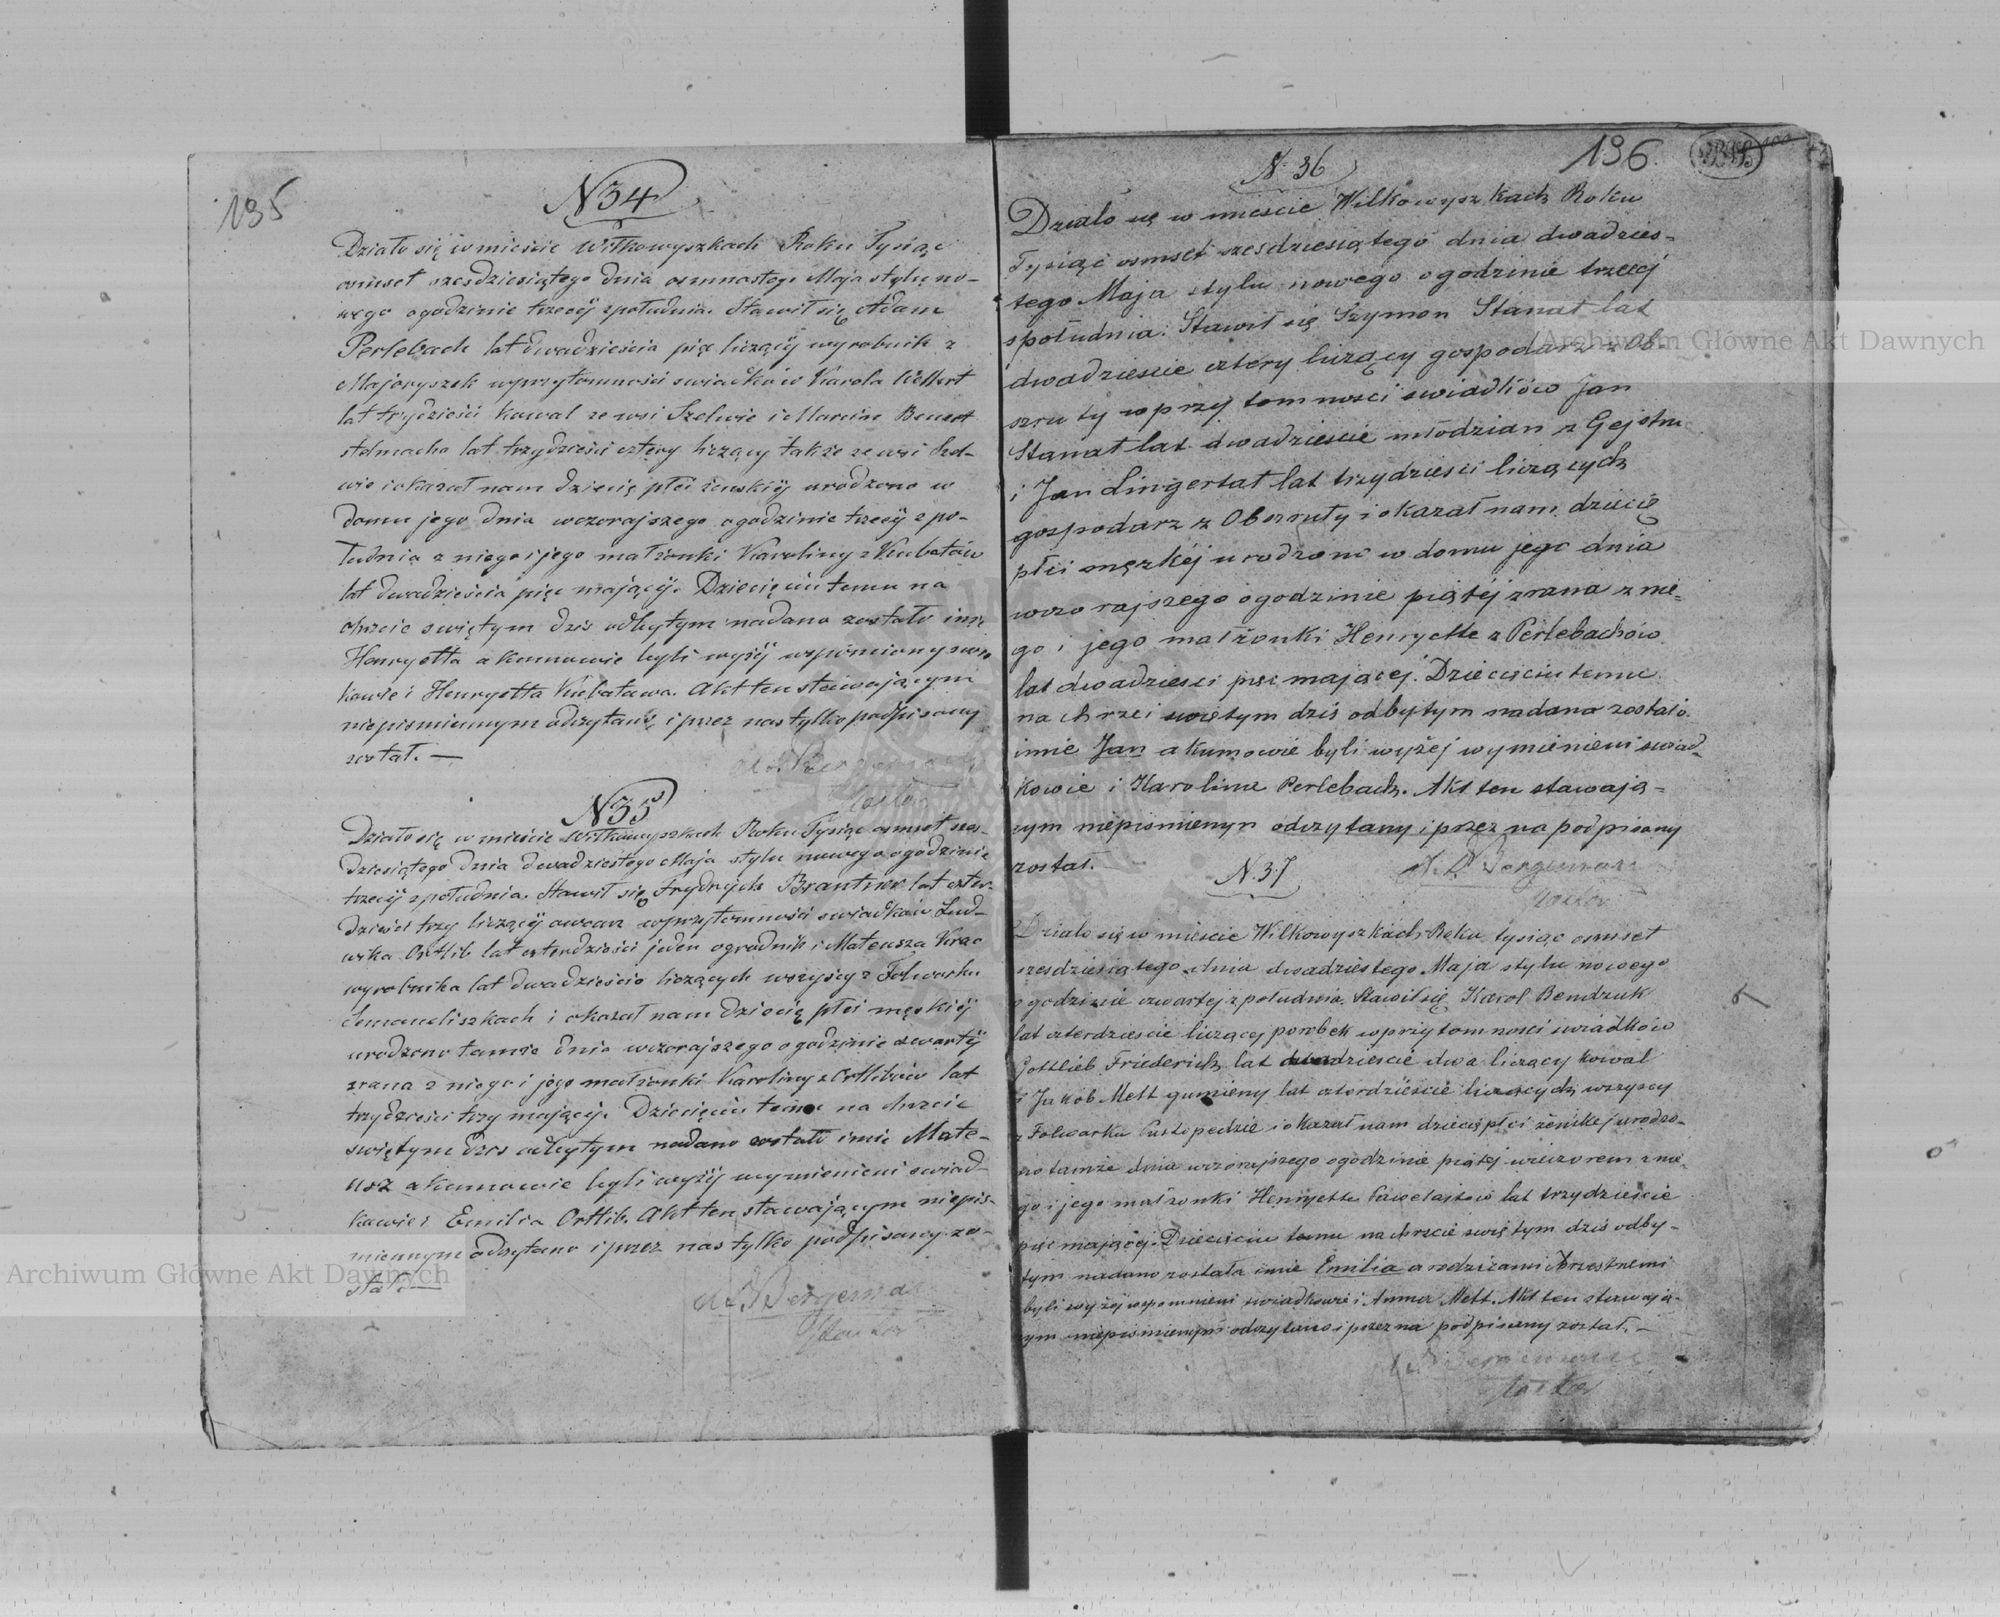 135
N 34
Działo się w mieście Wiłkowyszkach Roku Tysiąc
ośmset szesdziesiątego dnia osmnastego Maja stylu no-
wego ogodzinie trzecij społudnia. Stawił się Adam
Perlebach lat dwadzieścia pięc liczącÿ wyrobnik z
Majoryszek wprzytomności swiadków Karola
lat trzydzieści kowal ze wsi Szelwie i Marcin
stelmacha lat trzydzieści cztery liczący także ze wsi Szel-
wie i okazał nam dziecię płci żenskiÿ urodzone w
domu jego dnia wczorajszego ogodzinie trzecij spo-
łudnia z niego i jego małżonki Karoliny z Kubatów
lat dwadzieścia pięc mającÿ. Dziecięciu temu na
chrzcie swiętym dzis odbytym nadano zostało imie
Henryetta a kumowie byli wyżÿ wspomniony swia
kowie i Henryetta Kubatowa. Akt ten stawającym
niepismiennym odczytano i przez nas tylko podpisany
został. —
Bergemann
Pastor
N 35
Działo się w mieście Wiłkowyszkach Roku Tysiąc osmset szes-
dziesiątego dnia dwadziestego Maja stylu nowego ogodzinie
trzecij społudnia. Stawił się Frydrych lat czter-
dzieści trzy liczącÿ owczarz wprzytomności swiadków Lud-
wika Ortlib lat czterdzieści jeden ogrodnik i Mateusza
wyrobnika lat dwadzieścia liczących wszyscy z Folwarku
i okazał nam dziecię płci męskiÿ
urodzono tamże dnia wczorajszego ogodzinie czwartÿ
zrana z niego i jego małżonki Karoliny z Ortlibów lat
trzydzieści trzy mającÿ. Dziecięciu temu na chrzcie
swiętym dzis odbytym nadano zostało imie Mate-
usz a kumowie byli wyżÿ wymienieni swiad-
kowie i Emilia Ortlib. Akt ten stawającym niepis-
miennym odczytano i przez nas tylko podpisany zo-
stał. —
Bergemann
Pastor
136.
N. 36
Działo się w miescie Wilkowyszkach Roku
Tysiąc osmset szesdziesiątego dnia dwadzies-
tego Maja stylu nowego ogodzinie trzeciej
społudnia. Stawił się Szymon Stanat lat
dwadziescie cztery liczący gospodarz z Ob-
szruty wprzytomnosci swiadków Jan
Stanat lat dwadziescie młodzian z
i Jan Lingertat lat trzydziesci liczących
gospodarz z Obszruty i okazał nam dziecię
płci męzkéj urodzone w domu jego dnia
wczorajszego ogodzinie piątéj zrana z nie-
go i jego małżonki Henryette z Perlebachów
lat dwadziesci pięc mającej. Dziecięciu temu
na chrzci swiętym dziś odbytym nadano zostało
imie Jan a kumowie byli wyżej wymienieni swiad-
kowie i Karoline Perlebach. Akt ten stawają-
cym niepismienym odczytany i przez na podpisany
został.
Bergemann
Pastor
N. 37
Działo się w miescie Wilkowyszkach Roku tysiąc osmset
szesdziesiątego dnia dwadziestego Maja stylu nowego
ogodzinie czwartej społudnia. Stawił się Karol Bendzuk
lat czterdziescie liczącej porobek wprzytomnosci swiadków
Gottlieb Friederich lat dwadziescie dwa liczący kowal
i Jakob Mett gumieny lat czterdziescie liczących wszyscy
z Folwarku Pustopedzie i okazał nam dziecię płci żenskej urodzo-
no tamże dnia wczorajszego ogodzinie piątéj wieczorem z nie-
go i jego małżonki Henryette lat trzydziescie
pięc mającéj. Dziecięciu temu na chrzcie swiętym dziś odby-
tym nadano została imie Emilia a rodzicami chrzestnemi
byli wyżej wspomnieni swiadkowie i Anna Mett. Akt ten stawają-
cym niepismienym odczytano i przez na podpisany został. —
Bergemann
Pastor
Archiwum Główne Akt Dawnych
Archiwum Główne Akt Dawnych